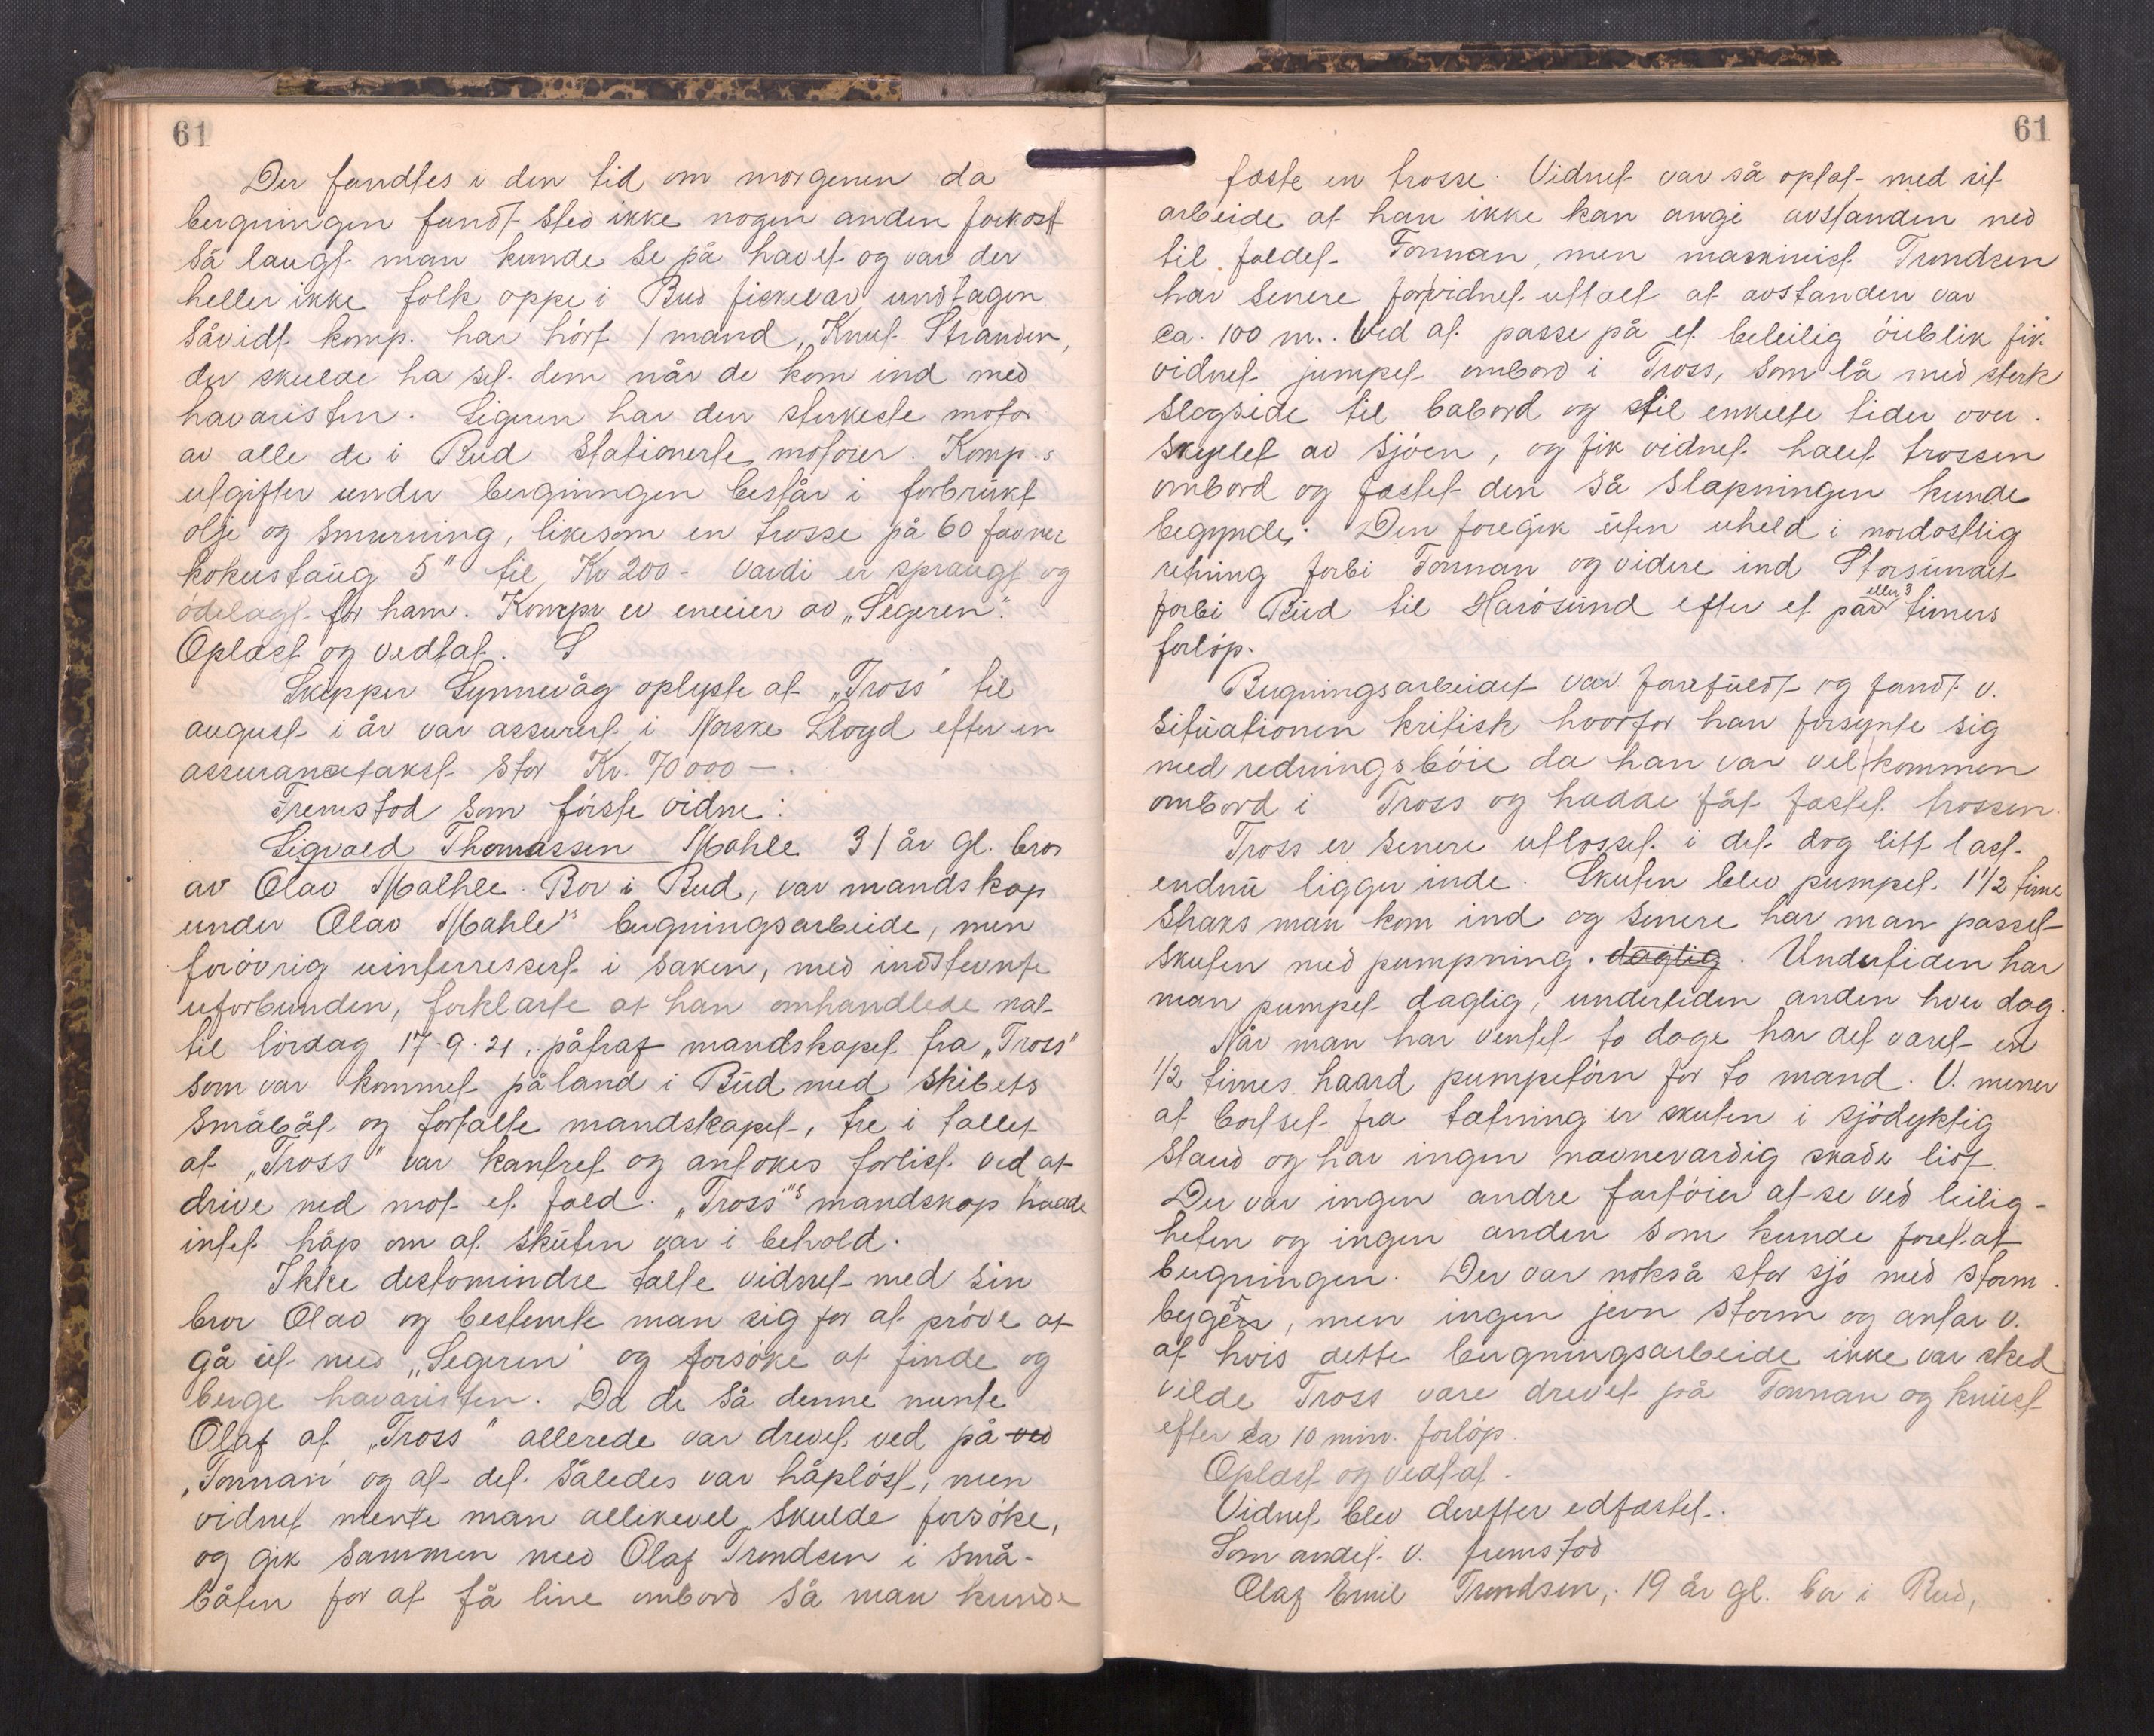 61
Der fandtes i den tid om morgenen da
bergningen fandt sted ikke nogen anden forkost
så langt man kunde se på havet og var der
heller ikke folk oppe i Bud fiskevær undtagen
såvidt komp. har hørt 1 mand, Knut Stranden,
der skulde ha set dem når de kom ind med
havaristen. Segeren har den sterkeste motor
av alle de i Bud stationerte motorer. Komp.s
utgifter under bergningen består i forbrukt
olje og smurning, likesom en trosse på 60 favner
kokustaug 5" til Kr 200 - værdi er sprængt og
ødelagt for ham. Kompr er eneeier av „Segeren".
Oplæst og vedtat. S
Skipper Synnevåg oplyste at „Tross" til
august i år var assurert i Norske Lloyd efter en
assurancetakst stor Kr. 70000 -.
Fremstod som første vidne:
Sigvald Thomassen Mahle 31 år gl. bror
av Olav Malhle. Bor i Bud, var mandskap
under Olav Mahle's bergningsarbeide, men
forøvrig uinterressert i saken, med indstevnte
uforbunden, forklarte at han omhandlede nat
til lördag 17.9.21, påtraf mandskapet fra „Tross"
som var kommet på land i Bud med skibets
småbåt og fortalte mandskapet, tre i tallet
at „Tross" var kantret og antokes forlist ved at
drive ned mot et fald. „Tross"'s mandskap hadde
intet håp om at skuten var i behold.
Ikke destomindre talte vidnet med sin
bror Olav og bestemte man sig for at prøve at
gå ut med „Segeren" og forsøke at finde og
berge havaristen. Da de så denne mente
Olaf at „Tross" allerede var drevet ved på ved
„Tonnan" og at det således var håpløst, men
vidnet mente man allikevel skulde forsøke,
og gik sammen med Olaf Trondsen i små-
båten for at få line ombord så man kunde
61
fæste en trosse. Vidnet var så optat med sit
arbeide at han ikke kan angi avstanden ned
til faldet Tonnan, men maskinist Trondsen
har senere for vidnet uttalt at avstanden var
ca. 100 m.. Ved at passe på et beleilig øieblik fik
vidnet jumpet ombord i Tross, som lå med sterk
slagside til babord og til enkelte tider over-
skyllet av sjøen, og fik vidnet halet trossen
ombord og fæstet den så slæpningen kunde
begynde. Den foregik uten uheld i nordostlig
retning forbi Tonnan og videre ind Storsundet
forbi Bud til Harøsund efter et par eller 3 timers
forløp.
Bergningsarbeidet var farefuldt og fandt v.
situationen kritisk hvorfor han forsynte sig
med redningsbøie da han var vel kommen
ombord i Tross og hadde fåt fæstet trossen.
Tross er senere utlosset i det dog litt last
endnu ligger inde. Skuten blev pumpet 1 1/2 time
straks man kom ind og senere har man passet
skuten med pumpning. daglig. Undertiden har
man pumpet daglig, undertiden anden hver dag.
Når man har ventet to dage har det været en
1/2 times haard pumpetørn for to mand. V. mener
at bortset fra tætning er skuten i sjødyktig
stand og har ingen nævneværdig skade lidt.
Der var ingen andre fartøier at se ved leilig-
heten og ingen anden som kunde foretat
bergningen. Der var nokså stor sjø med storm-
bygern, men ingen jevn storm og antar v.
at hvis dette bergningsarbeide ikke var sked
vilde Tross være drevet på Tonnan og knust
efter ca 10 min. forløp.
Oplæst og vedtat.
Vidnet blev derefter edfæstet.
Som andet v. fremstod
Olaf Emil Trondsen, 19 år gl. bor i Bud,